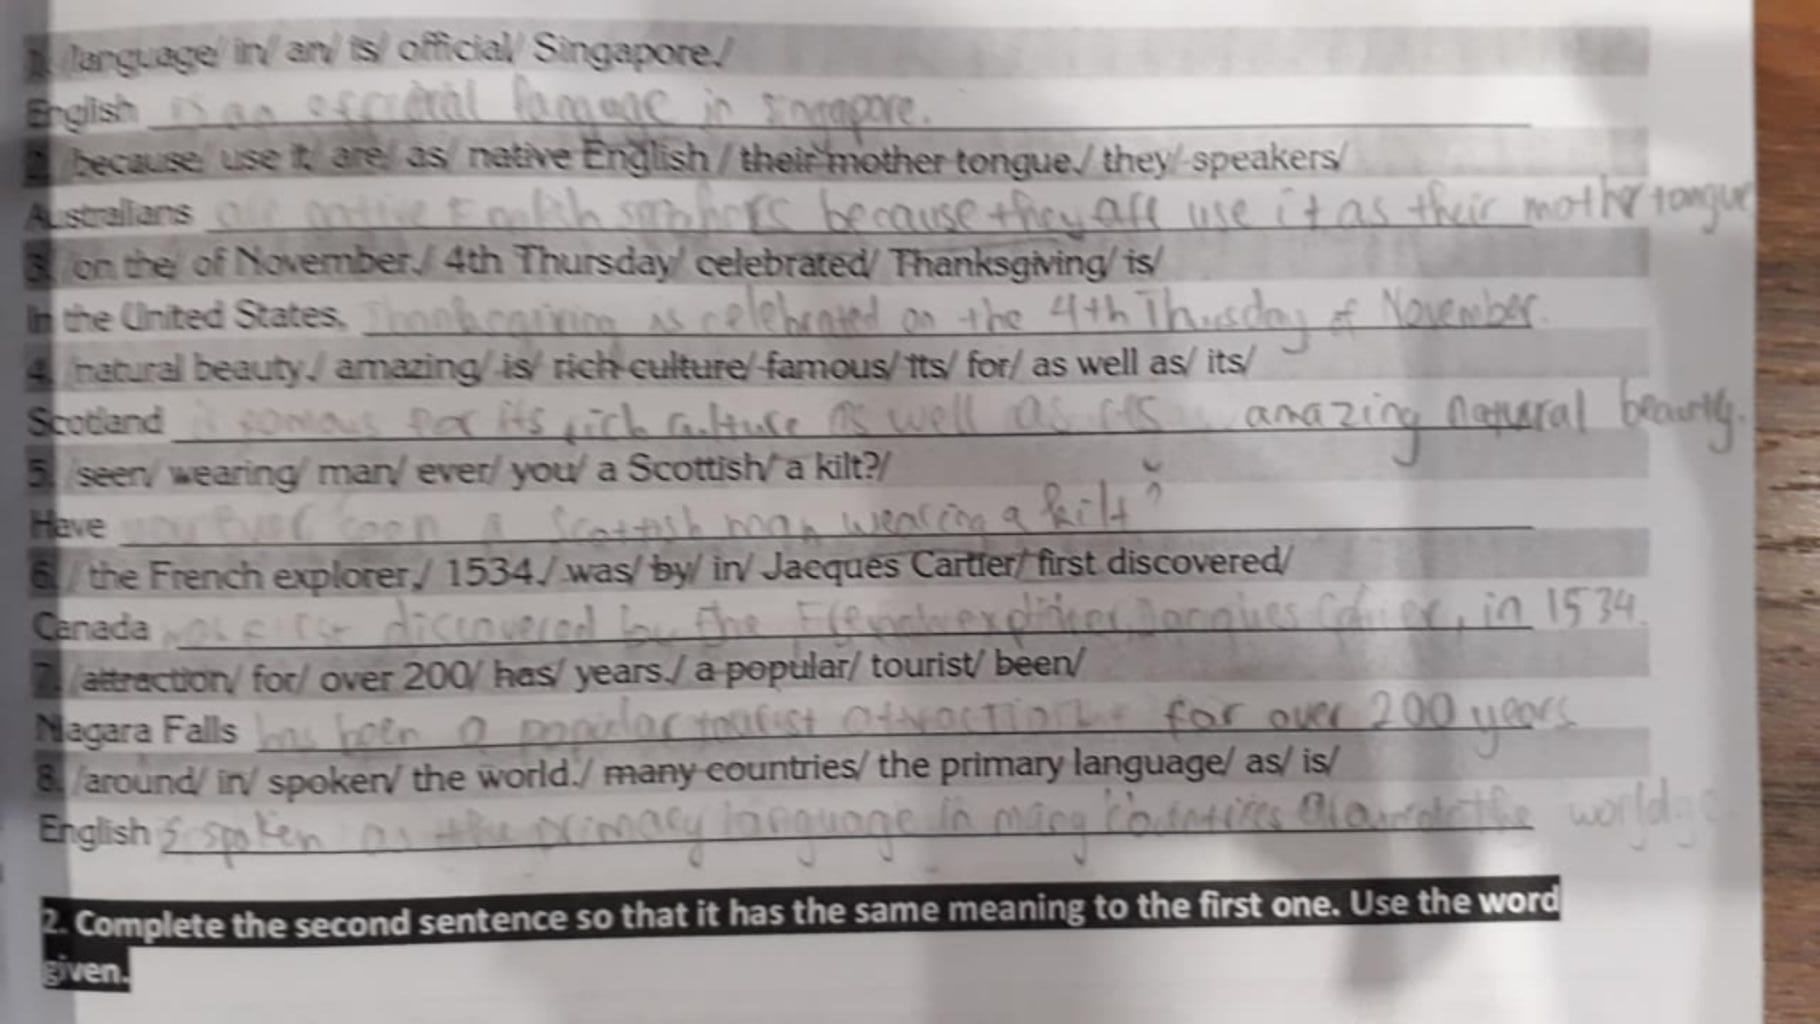 1. /language/ in/ an/ is/ official/ Singapore./
English is an official language in Singapore.
2. /because/ use it/ are/ as/ native English / their mother tongue./ they/ speakers/
Australians are native English because they are use it as their mother tongue
3. /on the/ of November./ 4th Thursday/ celebrated/ Thanksgiving/ is/
In the United States, Thanksgiving is celebrated on the 4th Thursday of November.
4. /natural beauty./ amazing/ is/ rich culture/ famous/ Its/ for/ as well as/ its/
Scotland famous for its rich culture as well as its amazing natural beauty.
5. /seen/ wearing/ man/ ever/ you/ a Scottish/ a kilt?/
Have you ever seen a Scottish man wearing a kilt?
6. / the French explorer,/ 1534./ was/ by/ in/ Jacques Cartier/ first discovered/
Canada was first discovered by the French explorer Jacques Cartier, in 1534.
7. /attraction/ for/ over 200/ has/ years./ a popular/ tourist/ been/
Niagara Falls has been a popular tourist attraction for over 200 years
8. /around/ in/ spoken/ the world./ many countries/ the primary language/ as/ is/
English is spoken as the primary language in many countries around the world.
2. Complete the second sentence so that it has the same meaning to the first one. Use the word
given.